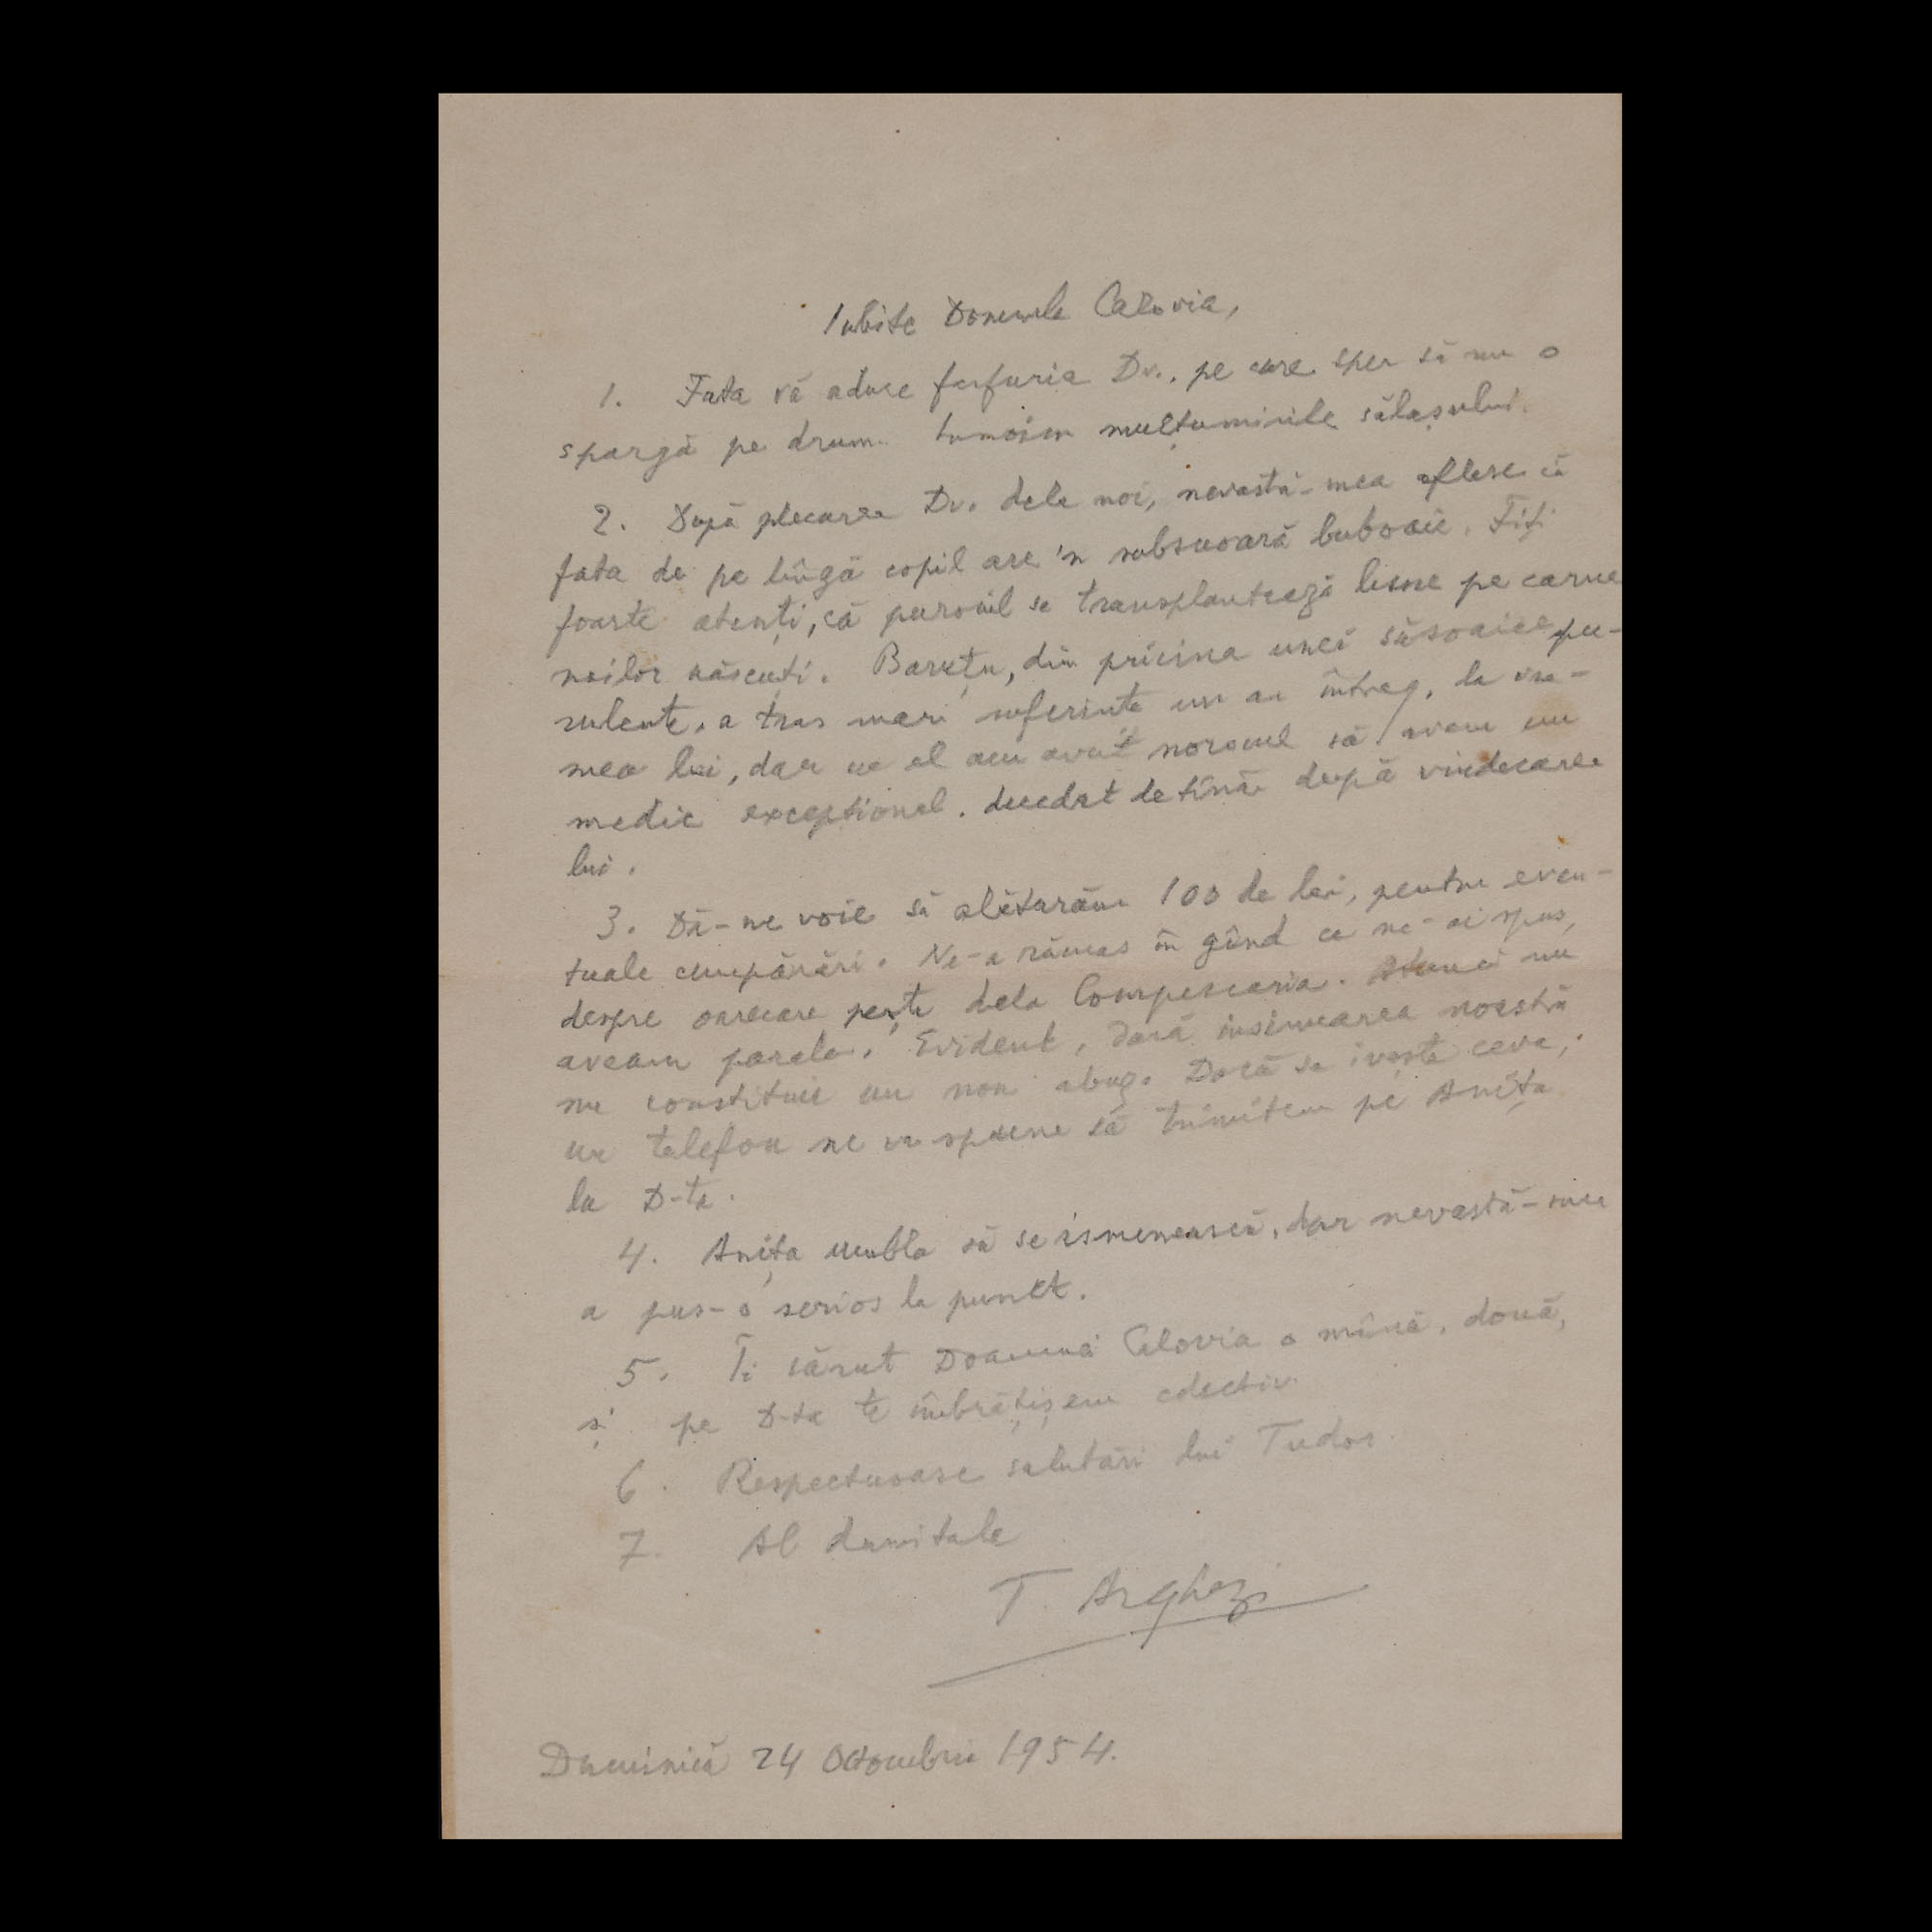 Iubite Domnule Calovia,
1. Fata vă aduce farfuria Dv., pe care sper să nu o
spargă pe drum. mulțumirile sălașului.
2. După plecarea Dv. dela noi, nevastă-mea aflase că
fata de pe lîngă copil are 'n subsuoară buboaie. Fiți
foarte atenți, că puroiul se transplantează lesne pe carnea
noilor născuți. Baruțu, din pricina unei pu-
rulente, a tras mari suferinte un an întreg, la vre-
mea lui, dar cu el am avut norocul să avem un
medic excepțional. decedat după vindecarea
lui.
3. Dă-ne voie să alăturăm 100 de lei, pentru even-
tuale cumpărări. Ne-a rămas în gînd ce ne-ai spus,
despre oarecare pește dela Compescaria. Atunci nu
aveam parale. Evident, dacă insinuarea noastră
nu constituie un nou abuz. Dacă se ivește ceva,
un telefon ne va spune să trimitem pe Anița
la D-ta.
4. Anița umbla să se ismenească, dar nevastă-mea
a pus-o serios la punct.
5. Îi sărut Doamnei Calovia o mînă, două,
și pe D-ta te îmbrățișem colectiv.
6. Respectuoase salutări lui Tudor.
7. Al dumitale
T. Arghezi
Duminică 24 Octombrie 1954.